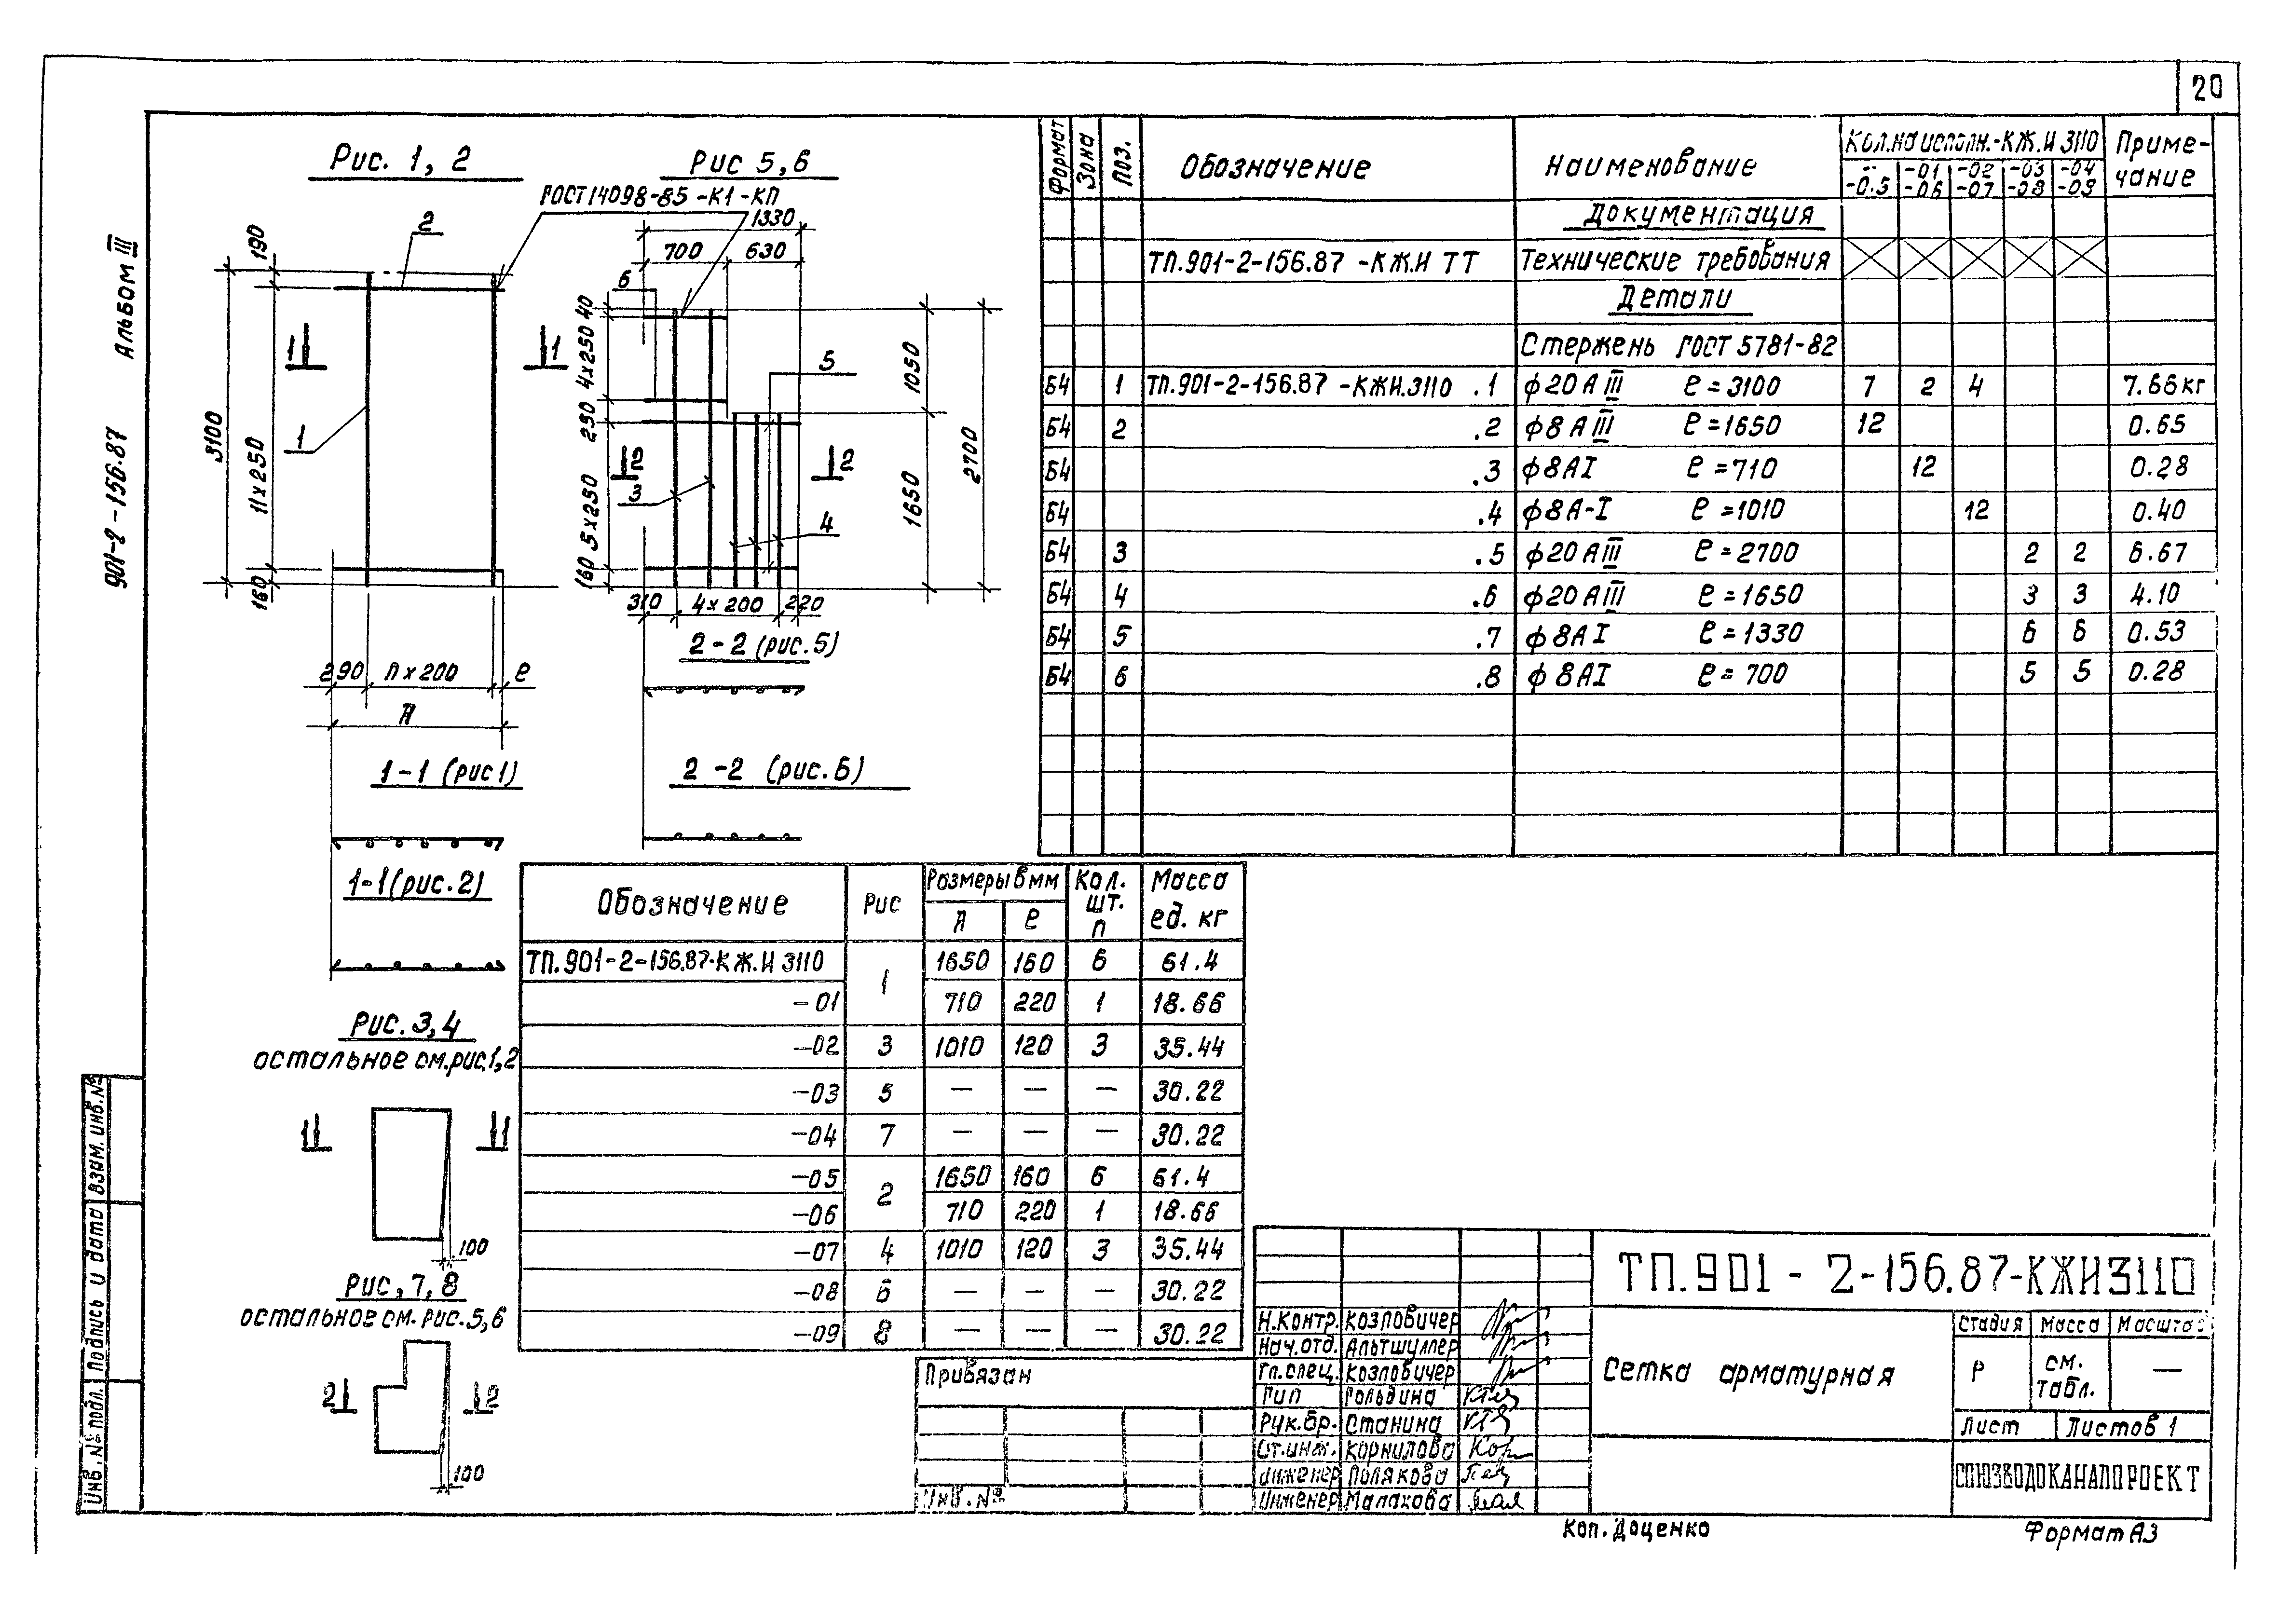 20
901-2-156.87 Альбом III
Рис. 1, 2
2
190
3100
11х250
160
1
1 1
290 n x 200 е
А
1-1 (рис1)
1-1 (рис.2)
Рис. 3,4
остальное см.рис.1,2
1 1
100
Рис, 7, 8
остальное см. рис. 5,6
2 2
100
Рис 5,6
ГОСТ14098-85-К1-КП
1330
700 630
6
40
4х250
250
5х250
160
5
2 2
3
4
1050
1650
2700
310 4х200 220
2-2 (рис.5)
2-2 (рис.6)
Формат Зона Поз. Обозначение Наименование Кол.на исполн.-КЖ.И 3110 Приме-
чание
- -01 -02 -03 -04
-0.5 -06 -07 -08 -09
Документация
ТП.901-2-156.87-КЖ.И ТТ Технические требования
Детали
Стержень ГОСТ 5781-82
Б4 1 ТП.901-2-156.87-КЖИ.3110 .1 ф20АIII е=3100 7 2 4 7.66кг
Б4 2 .2 ф8АIII е=1650 12 0.65
Б4 .3 ф8АI е=710 12 0.28
Б4 .4 ф8А-I е=1010 12 0.40
Б4 3 .5 ф20АIII е=2700 2 2 6.67
Б4 4 .6 ф20АIII е=1650 3 3 4.10
Б4 5 .7 ф8АI е=1330 6 6 0.53
Б4 6 .8 ф8АI е=700 5 5 0.28
Обозначение Рис Размеры в мм Кол. шт. n Масса ед. кг
А е
ТП.901-2-156.87-КЖ.И 3110 1 1650 160 6 61.4
-01 710 220 1 18.66
-02 3 1010 120 3 35.44
-03 5 — — — 30.22
-04 7 — — — 30.22
-05 2 1650 160 6 61.4
-06 710 220 1 18.66
-07 4 1010 120 3 35.44
-08 6 — — — 30.22
-09 8 — — — 30.22
Привязан
Инв.№
ТП.901-2-156.87-КЖИ3110
Н.контр. Козловичер
Нач.отд. Альтшуллер
Гл.спец. Козловичер
Гип Гольдина
Рук.бр. Станина
Ст.инж. Корнилова
Инженер Полякова
Инженер Малахова
Сетка арматурная
Стадия Масса Масштаб
Р см. табл. —
Лист Листов 1
СОЮЗВОДОКАНАЛПРОЕКТ
Коп. Доценко Формат А3
Инв.№ подл. Подпись и дата Взам. инв.№